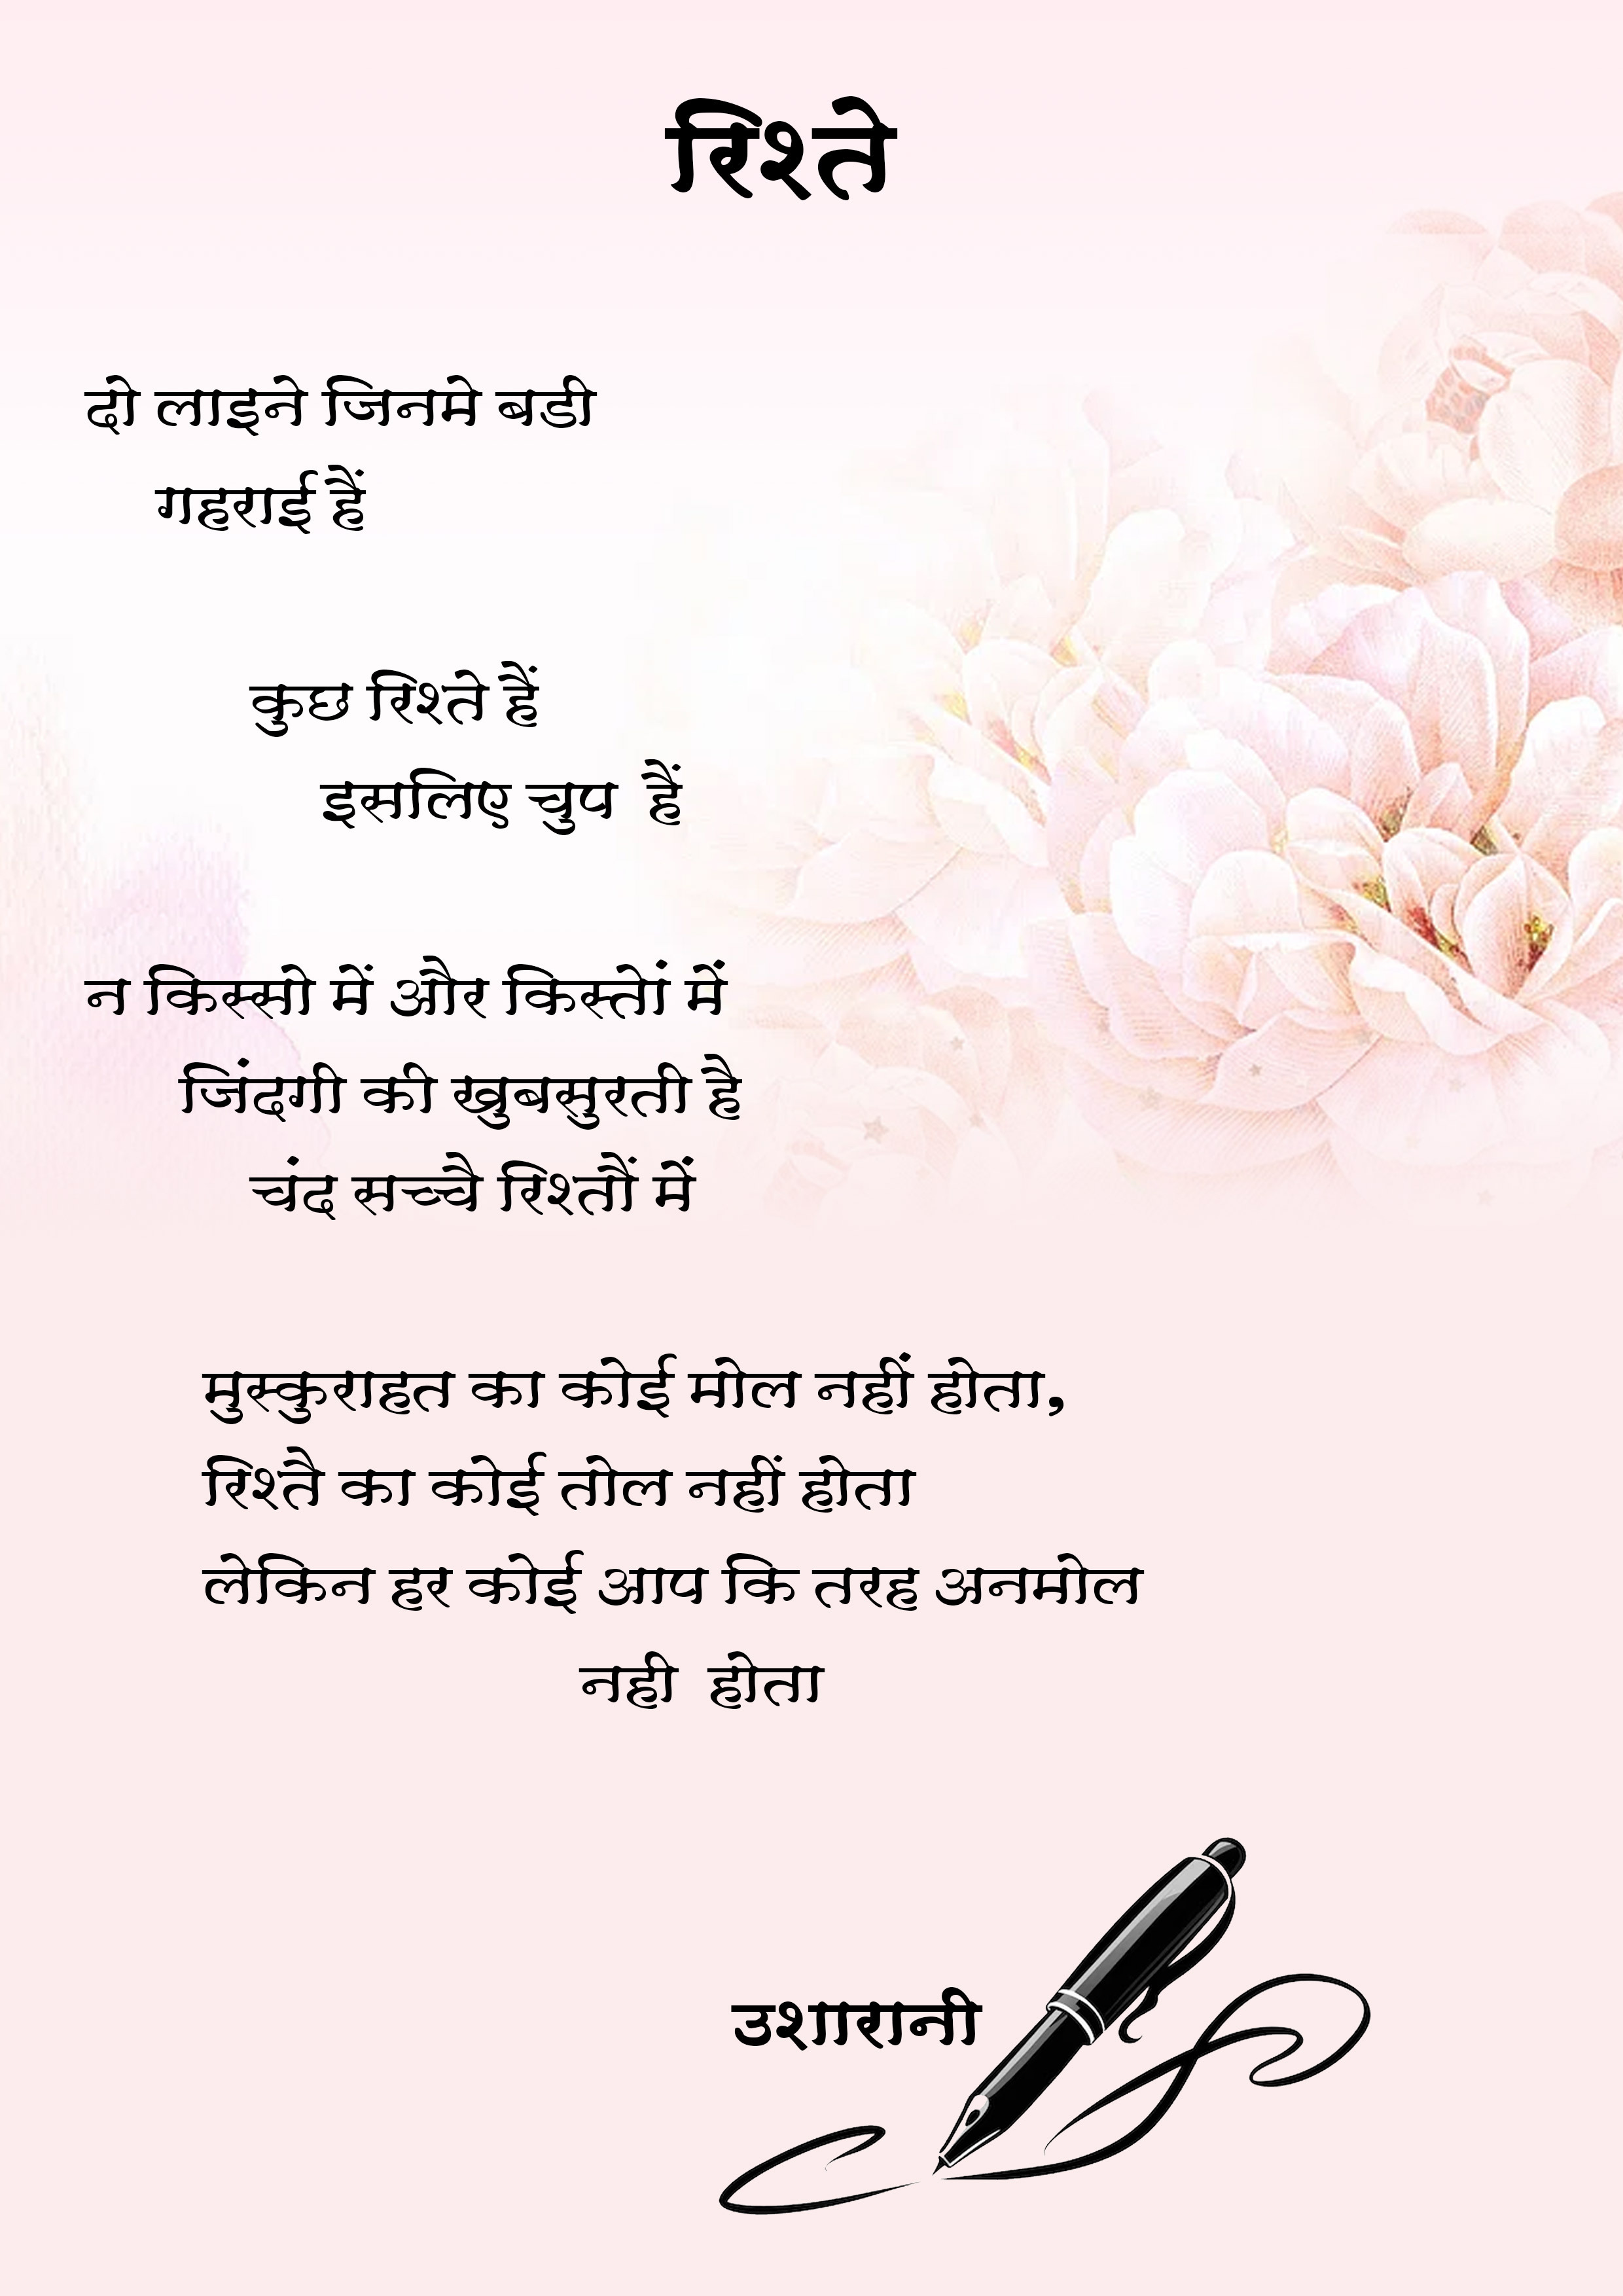 रिश्ते
दो लाइने जिनमे बडी
गहराई हैं
कुछ रिश्ते हैं
इसलिए चुप हैं
न किस्सो में और किस्तों में
जिंदगी की खुबसुरती है
चंद सच्चै रिश्तौं में
मुस्कुराहत का कोई मोल नहीं होता,
रिश्तै का कोई तोल नहीं होता
लेकिन हर कोई आप कि तरह अनमोल
नही होता
उशारानी